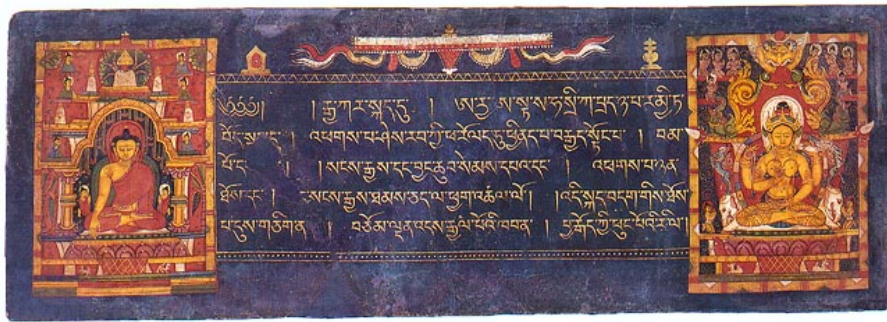 ༄༅༅། །རྒྱ་ཀར་སྐད་དུ། ཨརྱ་ཨ་ཥྚ་ས་ཧ་སྲི་ཀ་པྲད་ཉ་པ་ར་མྱི་ཏ་
བོད་སྐད་དུ། འཕགས་པ་ཤེས་རབ་ཀྱི་ཕ་རོལ་ཏུ་ཕྱིན་པ་བརྒྱད་སྟོང་པ།
།སངས་རྒྱས་དང་བྱང་ཆུབ་སེམས་དཔའ་དང་། འཕགས་པ་ཉན་
ཐོས་དང་། སངས་རྒྱས་ཐམས་ཅད་ལ་ཕྱག་འཚལ་ལོ། །འདི་སྐད་བདག་གིས་ཐོས་
པ་དུས་གཅིག་ན། བཅོམ་ལྡན་འདས་རྒྱལ་པོའི་ཁབ་ན། བྱ་རྒོད་ཀྱི་ཕུང་པོའི་རི་ལ།